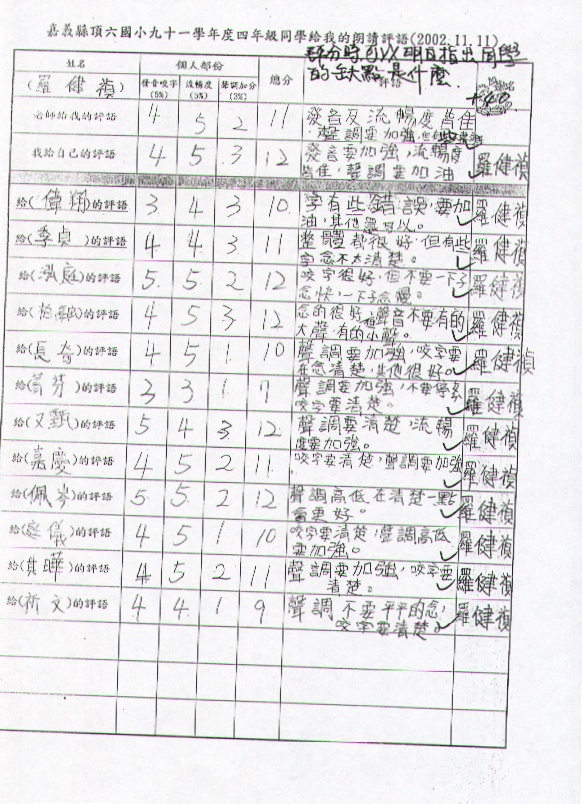 嘉義縣頂六國小九十一學年度四年級同學給我的朗讀評語(2002.11.11)
評分時可以明白指出同學
的缺點是什麼.
姓名 個人部份 總分 評語
(羅健禎) 發音咬字(5%) 流暢度(5%) 聲調加分(3%) +40
老師給我的評語 4 5 2 11 發音及流暢度皆佳
,聲調要加強,
我給自己的評語 4 5 3 12 發音要加強,流暢度 羅健禎
皆佳,聲調要加油
給(偉翔)的評語 3 4 3 10. 字有些錯誤,要加 羅健禎
油,其他還可以。
給(季貞)的評語 4 4 3 11 整體都很好,但有些 羅健禎
字念不太清楚。
給(泓庭)的評語 5 5 2 12 咬字很好,但不要一下子 羅健禎
念快一下子念慢。
給( )的評語 4 5 3 12 念的很好,聲音不要有的 羅健禎
大聲,有的小聲。
給( )的評語 4 5 1 10 聲調要加強,咬字要 羅健禎
在念清楚,其他很好。
給( 芬)的評語 3 3 1 7 聲調要加強,不要停奈 羅健禎
咬字要清楚。
給(又甄)的評語 5 4 3 12 聲調要清楚,流暢 羅健禎
度要加強。
給(嘉慶)的評語 4 5 2 11 咬字要清楚,聲調要加強 羅健禎
給(佩岑)的評語 5 5 2 12 聲調高低在清楚一點 羅健禎
會更好。
給(庭儀)的評語 4 5 1 10 咬字要清楚,聲調高低 羅健禎
要加強。
給(其曄)的評語 4 5 2 11 聲調要加強,咬字要 羅健禎
清楚。
給(祈文)的評語 4 4 1 9 聲調不要平平的念, 羅健禎
咬字要清楚。